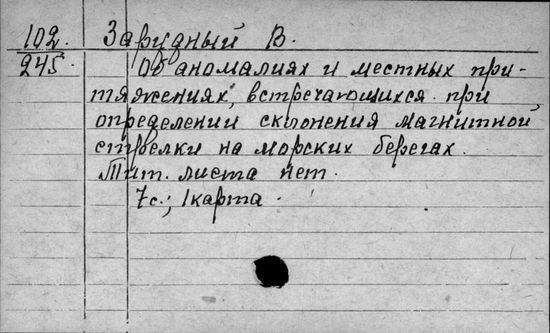 102. Зарудный В.
245. Об аномалиях и местных при-
тяжениях, встречающихся при
определении склонения магнитной
стрелки на морских берегах.
Тит. листа нет.
7с.; 1 карта.